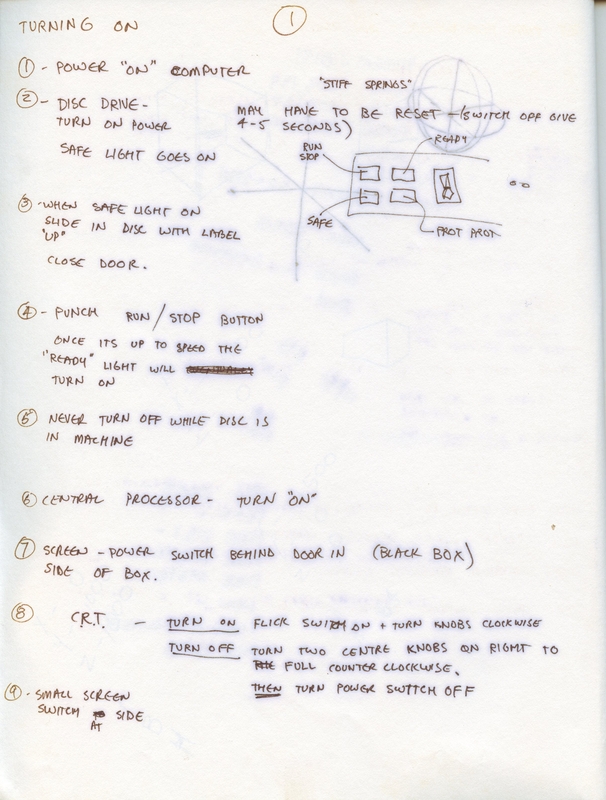 TURNING ON
1
1 - POWER "ON" COMPUTER
"STIFF SPRINGS"
2 - DISC DRIVE -
TURN ON POWER
MAY HAVE TO BE RESET - (SWITCH OFF GIVE
4-5 SECONDS)
SAFE LIGHT GOES ON
RUN
STOP
READY
SAFE
PROT
3 - WHEN SAFE LIGHT ON
SLIDE IN DISC WITH LABEL
"UP"
CLOSE DOOR.
4 - PUNCH RUN/STOP BUTTON
ONCE ITS UP TO SPEED THE
"READY" LIGHT WILL
TURN ON
5 NEVER TURN OFF WHILE DISC IS
IN MACHINE
6 CENTRAL PROCESSOR - TURN "ON"
7 SCREEN - POWER SWITCH BEHIND DOOR IN (BLACK BOX)
SIDE OF BOX.
8 C.R.T. - TURN ON FLICK SWITCH ON + TURN KNOBS CLOCKWISE
TURN OFF TURN TWO CENTRE KNOBS ON RIGHT TO
FULL COUNTER CLOCKWISE.
THEN TURN POWER SWITCH OFF
9 - SMALL SCREEN
SWITCH AT SIDE